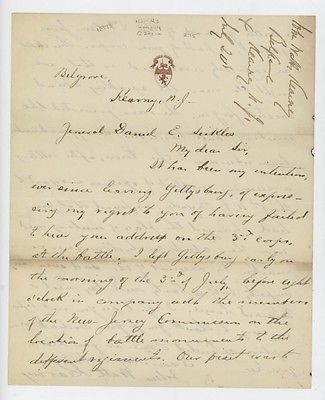 Belgrove,
Kearny, N.J.
General Daniel E. Sickles
My dear Sir,
It has been my intention,
ever since leaving Gettysburg, of express-
ing my regret to you of having failed
to hear you address on the 3rd corps,
at the battle. I left Gettysburg early on
the morning of the 3rd of July, before eight
o'clock in company with the members
of the New Jersey Commission on the
location of battle monuments to the
different regiments. Our visit was to
Kearny
Belgrove
Kearny, N.J.
July 20